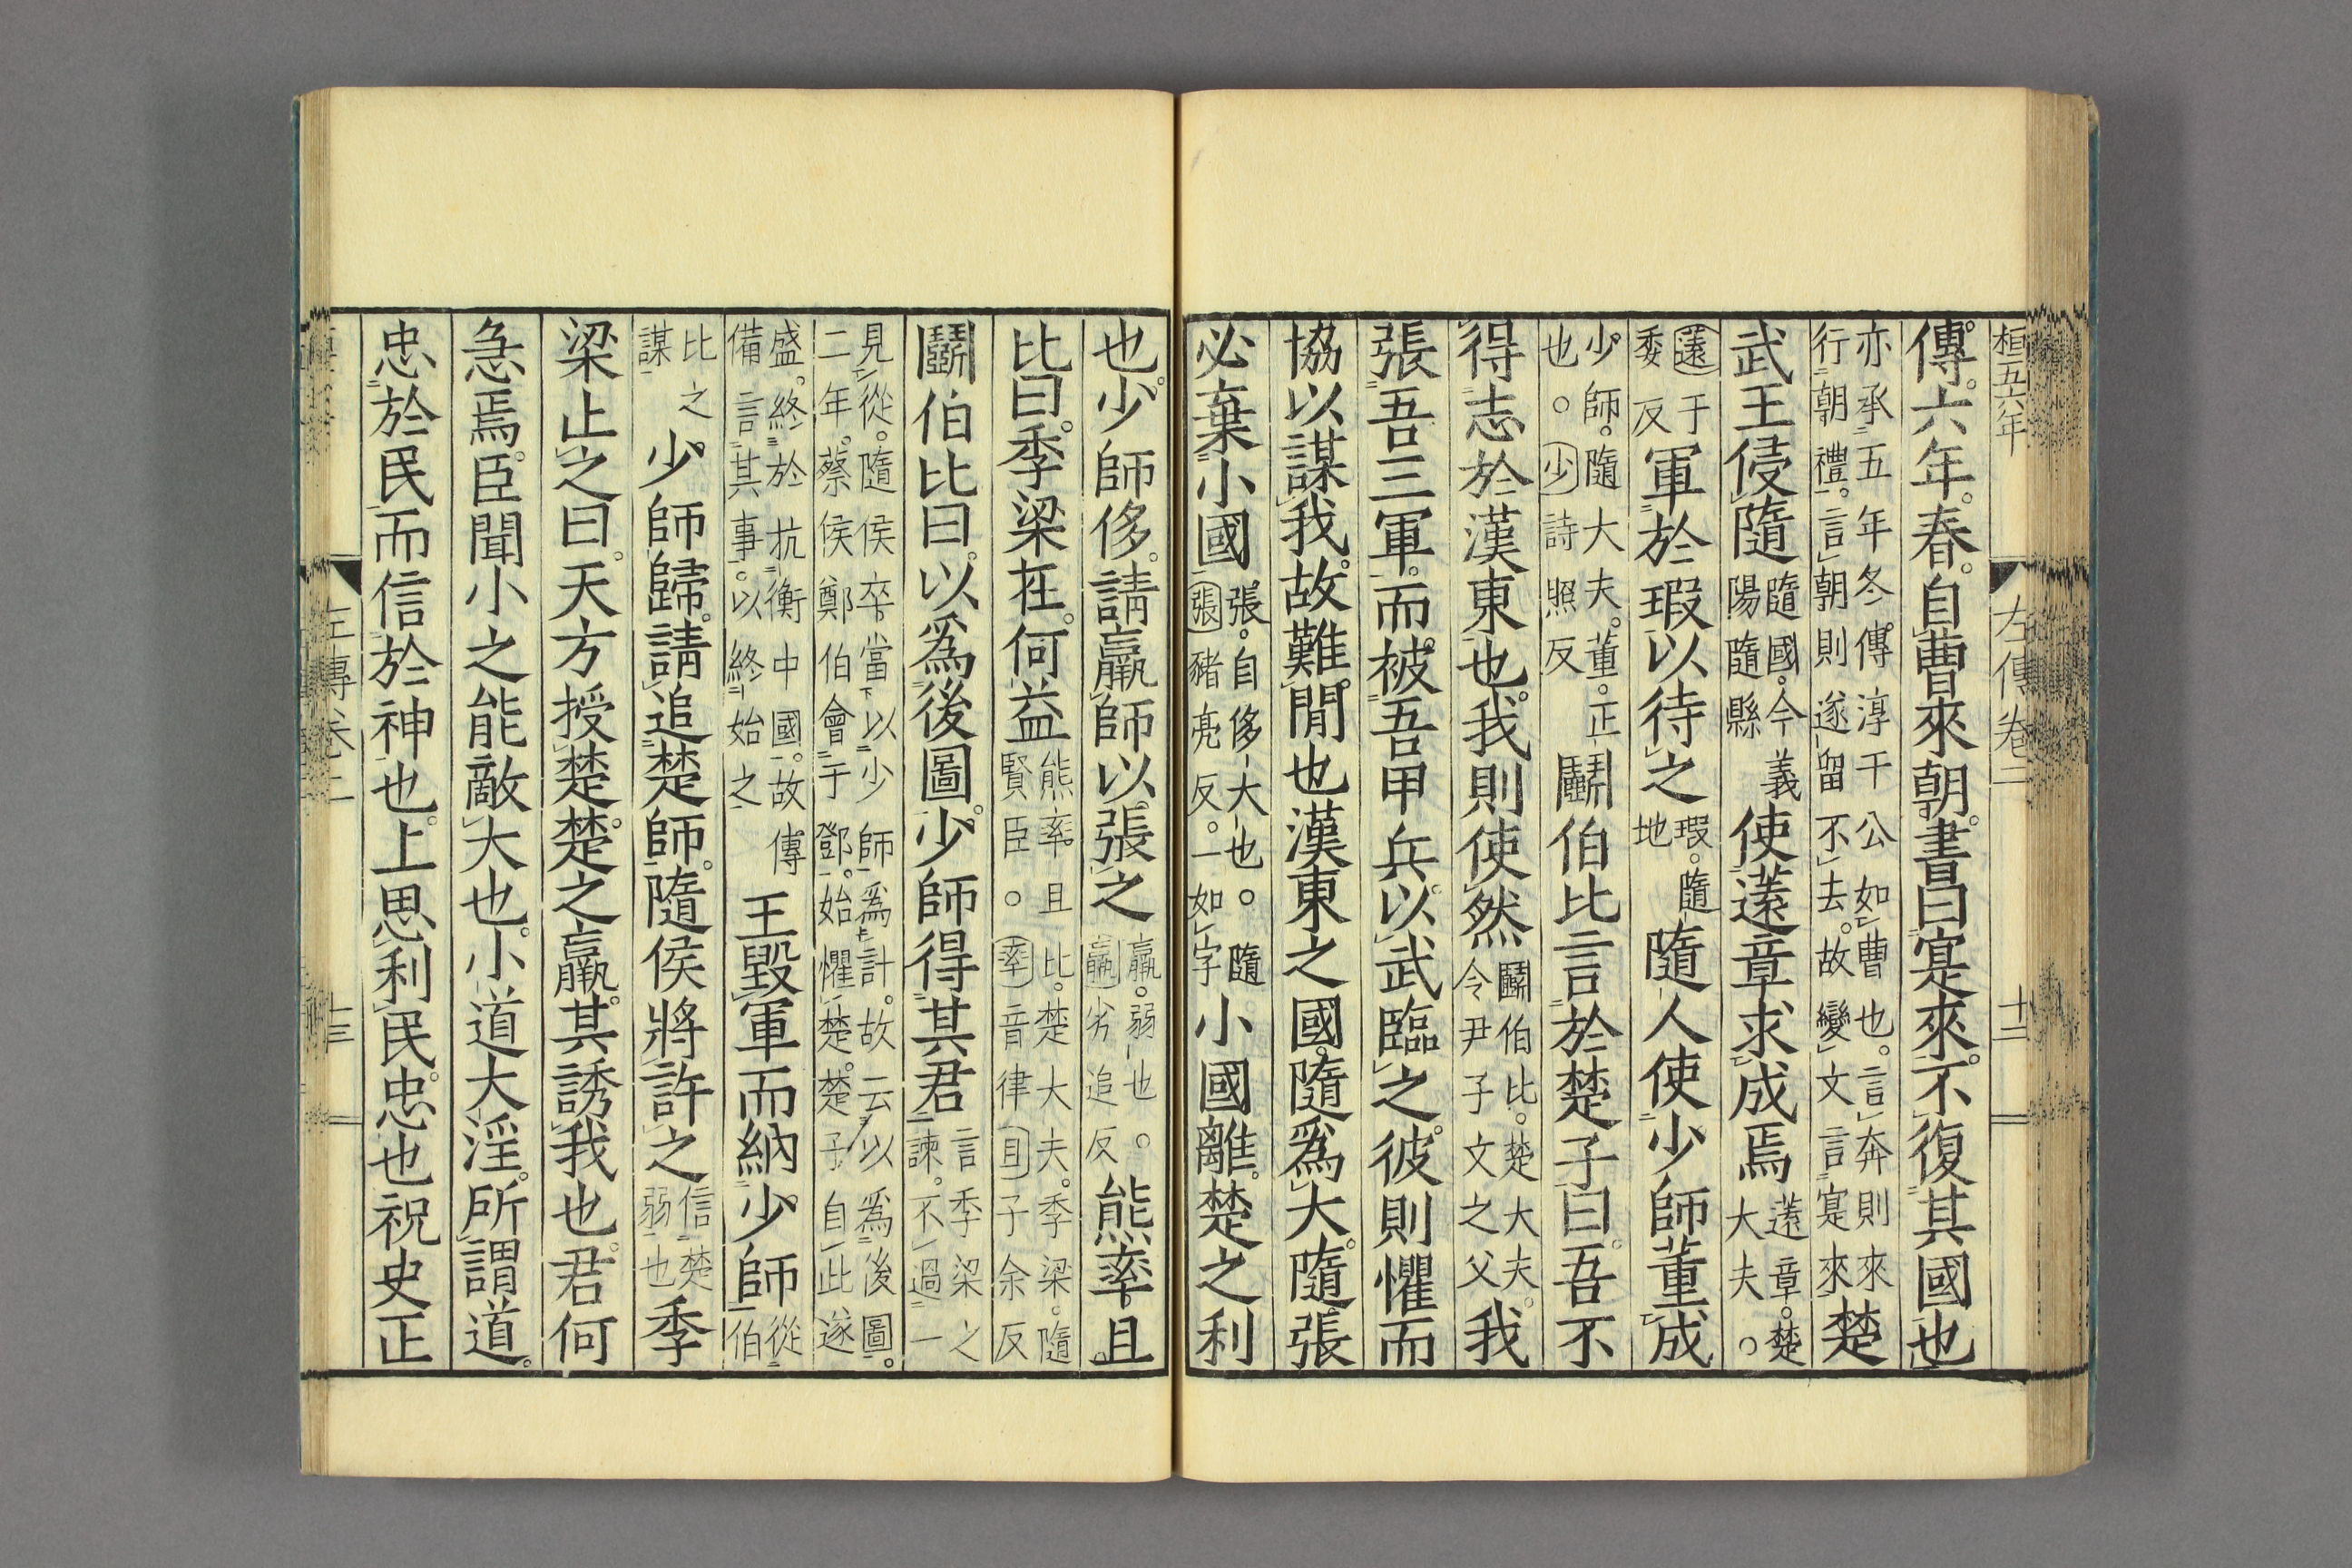 桓五六年 左傳卷二 十二
傳。六年。春。自曹來朝。書曰寔來。不復其國也
亦承五年冬傳淳于公如曹也。言奔則來
行朝禮。言朝則遂留不去。故變文言寔來
楚
武王侵隨
隨國。今義
陽隨縣
使薳章求成焉
薳章。楚
大夫。
薳于
委反
軍於瑕以待之
瑕。隨
地
隨人使少師董成
少師。隨大夫。董。正
也。少詩照反
鬬伯比言於楚子曰。吾不
得志於漢東也。我則使然
鬬伯比。楚大夫。
令尹子文之父
我
張吾三軍。而被吾甲兵。以武臨之。彼則懼而
協以謀我。故難閒也漢東之國。隨爲大。隨張
必棄小國
張。自侈大也。隨
張豬亮反。一如字
小國離。楚之利
也。少師侈。請羸師以張之
羸。弱也。
羸劣追反
熊率且
比曰。季梁在。何益
熊率且比。楚大夫。季梁。隨
賢臣。率音律且子余反
鬬伯比曰。以爲後圖。少師得其君
言季梁之
諫。不過一
見從。隨侯卒當以少師爲計。故云以爲後圖。
二年。蔡侯鄭伯會于鄧。始懼楚。楚子自此遂
盛。終於抗衡中國。故傳
備言其事。以終始之
王毀軍而納少師
從
伯
比之
謀
少師歸。請追楚師。隨侯將許之
信楚
弱也
季
梁止之曰。天方授楚。楚之羸。其誘我也。君何
急焉。臣聞小之能敵大也。小道大淫。所謂道。
忠於民而信於神也。上思利民。忠也祝史正
左傳卷二 十三